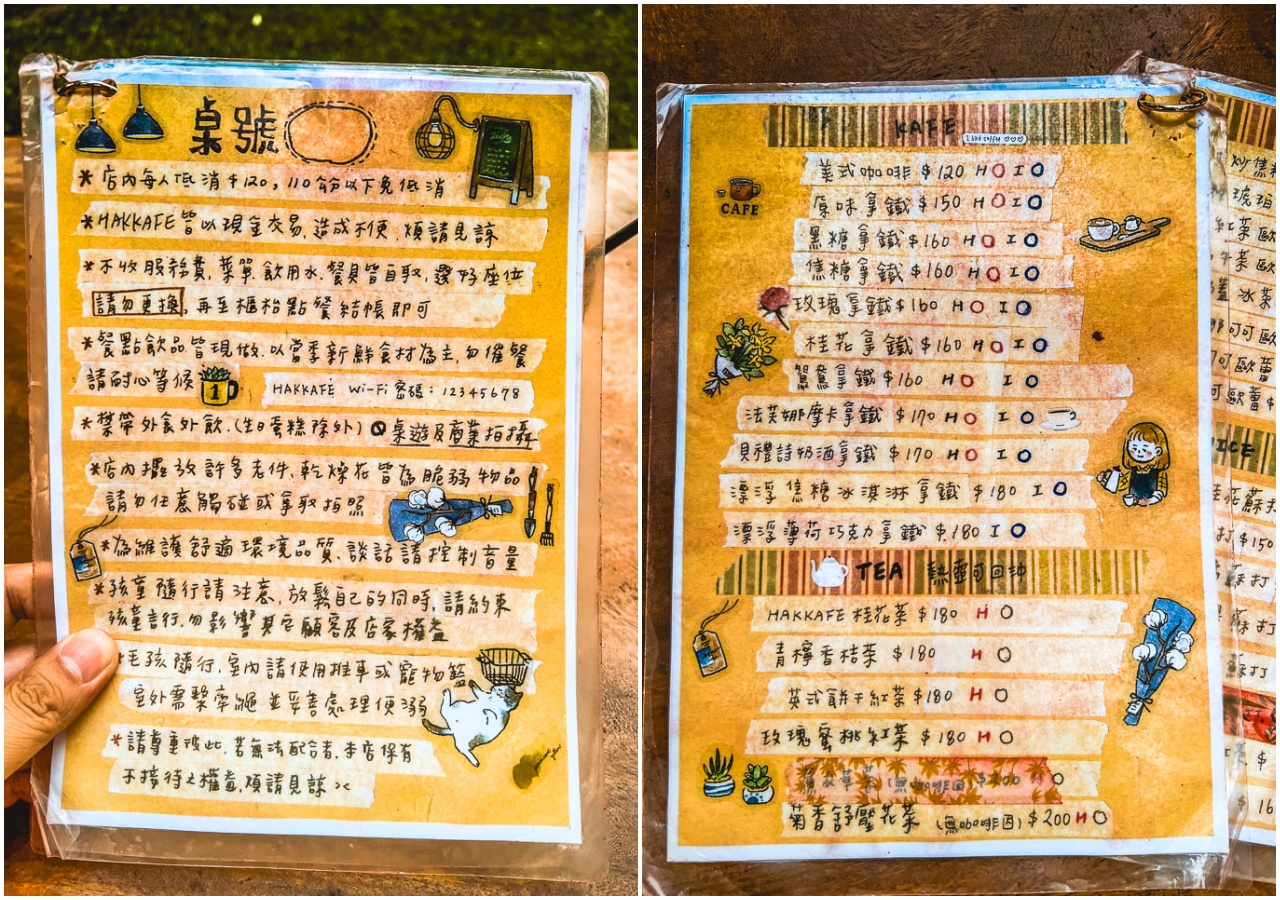 桌號
*店內每人低消$120，110公分以下免低消
*HAKKAFE皆以現金交易.造成不便.煩請見諒
*不收服務費.菜單.飲用水.餐具皆自取.選好座位
請勿更換，再至櫃枱點餐結帳即可
*餐點飲品皆現做.以當季新鮮食材為主.勿催餐
請耐心等候 1
HAKKAFE Wi-Fi 密碼：12345678
*禁帶外食外飲.(生日蛋糕除外) 桌遊及商業拍攝
*店內擺放許多老件.乾燥花皆為脆弱物品
請勿任意觸碰或拿取拍照
*為維護舒適環境品質.談話請控制音量
*孩童隨行請注意.放鬆自己的同時.請約束
孩童言行.勿影響其它顧客及店家權益
*毛孩隨行.室內請使用推車或寵物籃
室外需繫牽繩並妥善處理便溺
*請尊重彼此.若無法配合者.本店保有
不接待之權益煩請見諒><
KAFE
CAFE
美式咖啡 $120 H O I O
原味拿鐵 $150 H O I O
黑糖拿鐵 $160 H O I O
焦糖拿鐵 $160 H O I O
玫瑰拿鐵 $160 H O I O
桂花拿鐵 $160 H O I O
鴛鴦拿鐵 $160 H O I O
法芙娜摩卡拿鐵 $170 H O I O
貝禮詩奶酒拿鐵 $170 H O I O
漂浮焦糖冰淇淋拿鐵 $180 I O
漂浮薄荷巧克力拿鐵 $180 I O
TEA 熱壺可回沖
HAKKAFE 桂花茶 $180 H O
青檸香桔茶 $180 H O
英式餅干紅茶 $180 H O
玫瑰蜜桃紅茶 $180 H O
菊香舒壓花茶 (無咖啡因) $200 H O